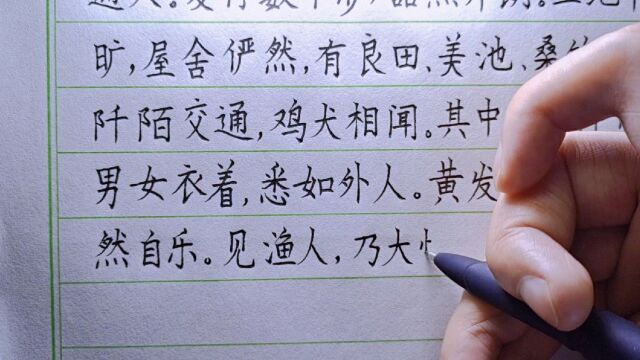 旷，屋舍俨然，有良田、美池、桑
阡陌交通，鸡犬相闻。其中
男女衣着，悉如外人。黄发
然自乐。见渔人，乃大